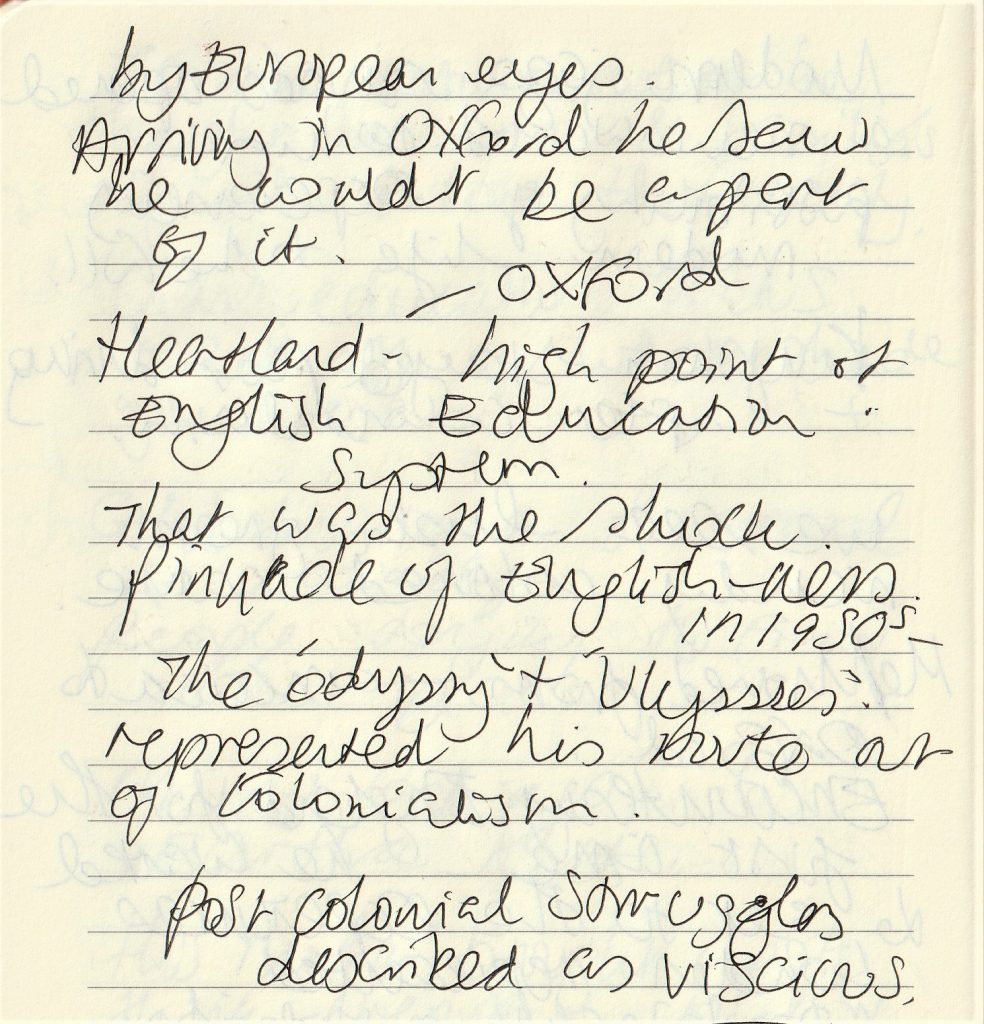 by European eyes.
Arriving in Oxford he saw
he wouldt be apart
of it.
— Oxford
Heartland - high point of
English Education
System.
That was the shock.
Pinnacle of English-ness.
in 1950s -
The 'Odyssy' + 'Ulyssses'.
represented his route out
of Colonialism.
Post colonial struggles
described as viscious.